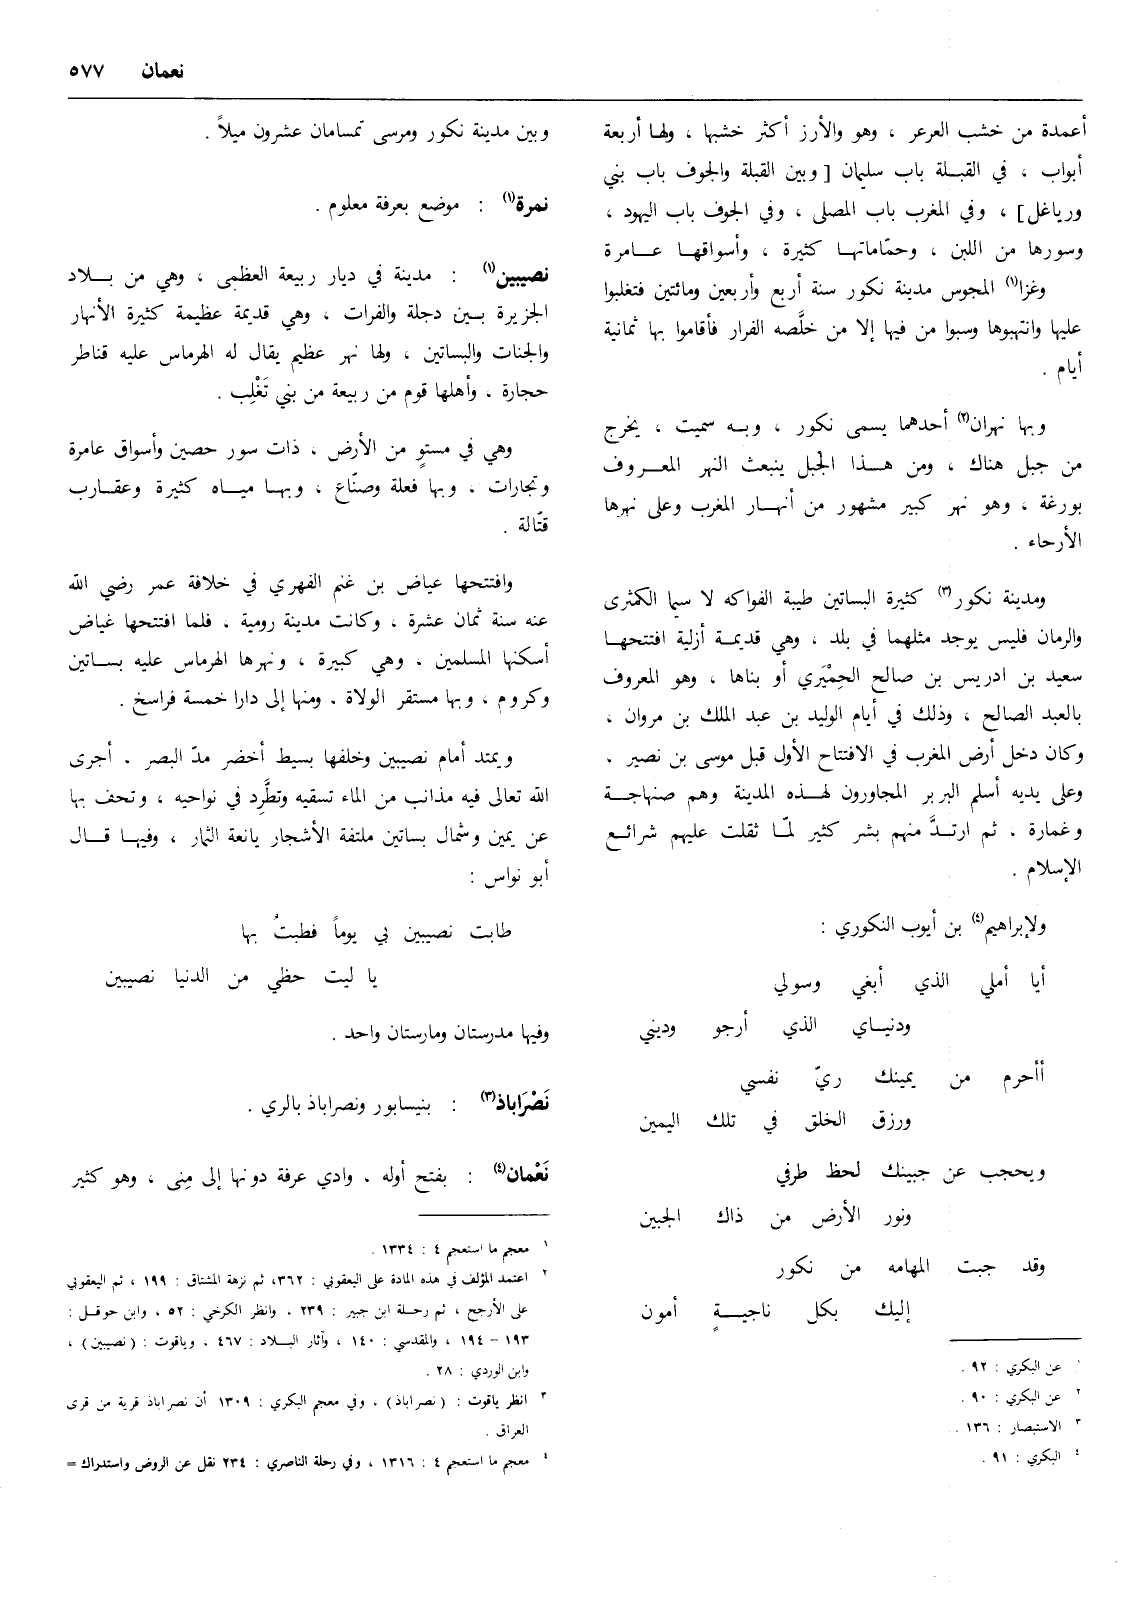 نعمان ٥٧٧
أعمدة من خشب العرعر ، وهو والأرز أكثر خشبها ، ولها أربعة
أبواب ، في القبلة باب سليمان [ وبين القبلة والجوف باب بني
ورياغل] ، وفي المغرب باب المصلى ، وفي الجوف باب اليهود ،
وسورها من اللبن ، وحمّاماتها كثيرة ، وأسواقها عامرة
وغزا(١) المجوس مدينة نكور سنة أربع وأربعين ومائتين فتغلبوا
عليها وانتهبوها وسبوا من فيها إلا من خلَّصه الفرار فأقاموا بها ثمانية
أيام .
وبها نهران(٢) أحدهما يسمى نكور ، وبه سميت ، يخرج
من جبل هناك ، ومن هذا الجبل ينبعث النهر المعروف
بورغة ، وهو نهر كبير مشهور من أنهار المغرب وعلى نهرها
الأرحاء .
ومدينة نكور(٣) كثيرة البساتين طيبة الفواكه لا سيما الكمثرى
والرمان فليس يوجد مثلهما في بلد ، وهي قديمة أزلية افتتحها
سعيد بن ادريس بن صالح الحِمْيَري أو بناها ، وهو المعروف
بالعبد الصالح ، وذلك في أيام الوليد بن عبد الملك بن مروان ،
وكان دخل أرض المغرب في الافتتاح الأول قبل موسى بن نصير .
وعلى يديه أسلم البربر المجاورون لهذه المدينة وهم صنهاجة
وغمارة . ثم ارتدَّ منهم بشر كثير لمّا ثقلت عليهم شرائع
الإسلام .
ولإبراهيم(٤) بن أيوب النكوري :
أيا أملي الذي أبغي وسولي
ودنياي الذي أرجو وديني
أأحرم من يمينك ريّ نفسي
ورزق الخلق في تلك اليمين
ويحجب عن جبينك لحظ طرفي
ونور الأرض من ذاك الجبين
وقد جبت المهامه من نكور
إليك بكل ناجيةٍ أمون
١ عن البكري : ٩٢ .
٢ عن البكري : ٩٠ .
٣ الاستبصار : ١٣٦ .
٤ البكري : ٩١ .
وبين مدينة نكور ومرسى تمسامان عشرون ميلاً .
نمرة(١) : موضع بعرفة معلوم .
نصيبين(١) : مدينة في ديار ربيعة العظمى ، وهي من بلاد
الجزيرة بين دجلة والفرات ، وهي قديمة عظيمة كثيرة الأنهار
والجنات والبساتين ، ولها نهر عظيم يقال له الهرماس عليه قناطر
حجارة ، وأهلها قوم من ربيعة من بني تَغْلِب .
وهي في مستوٍ من الأرض ، ذات سور حصين وأسواق عامرة
وتجارات . وبها فعلة وصنّاع ، وبها مياه كثيرة وعقارب
قتّالة .
وافتتحها عياض بن غنم الفهري في خلافة عمر رضي الله
عنه سنة ثمان عشرة ، وكانت مدينة رومية ، فلما افتتحها غياض
أسكنها المسلمين . وهي كبيرة ، ونهرها الهرماس عليه بساتين
وكروم ، وبها مستقر الولاة . ومنها إلى دارا خمسة فراسخ .
ويمتد أمام نصيبين وخلفها بسيط أخضر مدّ البصر . أجرى
الله تعالى فيه مذانب من الماء تسقيه وتطَّرِد في نواحيه ، وتحف بها
عن يمين وشمال بساتين ملتفة الأشجار يانعة الثمار ، وفيها قال
أبو نواس :
طابت نصيبين بي يوماً فطبتُ بها
يا ليت حظي من الدنيا نصيبين
وفيها مدرستان ومارستان واحد .
نَصْرَاباذ(٣) : بنيسابور ونصراباذ بالري .
نَعْمان(٤) : بفتح أوله . وادي عرفة دونها إلى مِنى ، وهو كثير
١ معجم ما استعجم ٤ : ١٣٣٤ .
٢ اعتمد المؤلف في هذه المادة على اليعقوبي : ٣٦٢، ثم نزهة المشتاق : ١٩٩ ، ثم اليعقوبي
على الأرجح ، ثم رحلة ابن جبير : ٢٣٩ . وانظر الكرخي : ٥٢ ، وابن حوقل :
١٩٣ – ١٩٤ ، والمقدسي : ١٤٠ ، وآثار البلاد : ٤٦٧ . وياقوت : ( نصيبين ) ،
وابن الوردي : ٢٨ .
٣ انظر ياقوت : ( نصراباذ ) . وفي معجم البكري : ١٣٠٩ أن نصراباذ قرية من قرى
العراق .
٤ معجم ما استعجم ٤ : ١٣١٦ ، وفي رحلة الناصري : ٢٣٤ نقل عن الروض واستدراك =